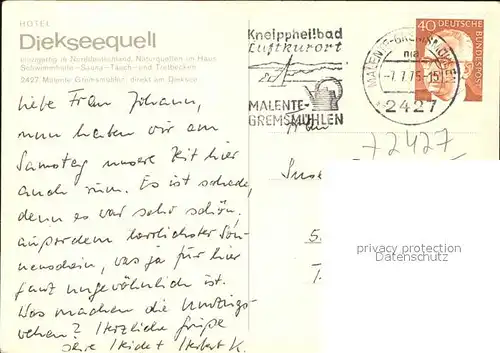 HOTEL
Diekseequell
einzigartig in Norddeutschland, Naturquellen im Haus
Schwimmhalle - Sauna - Tauch- und Tretbecken
2427 Malente Gremsmühlen, direkt am Dieksee
Kneippheilbad
Luftkurort
MALENTE-
GREMSMÜHLEN
MALENTE-GREMSMÜHLEN
-7.7.76-15
2427
40 DEUTSCHE
BUNDESPOST
72427
Liebe Frau Johann,
nun haben wir am
Samstag unsere Zeit hier
auch rum. Es ist schade,
denn es war sehr schön,
außerdem herrlichster Son-
nenschein, was ja für hier
ganz ungewöhnlich ist.
Was machen die Umzugs-
wehen? Herzliche Grüße
Herbert K.
PRIVACY PROTECTION
oldthing.com